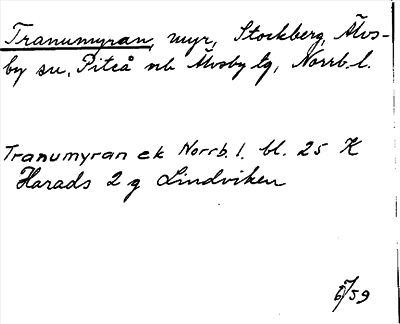 Tranumyran, myr, Stockberg, Älvs-
by sn, Piteå nb Älvsby tg, Norrb. l.
Tranumyran ek Norrb. l. bl. 25 K
Harads 2 g Lindviken